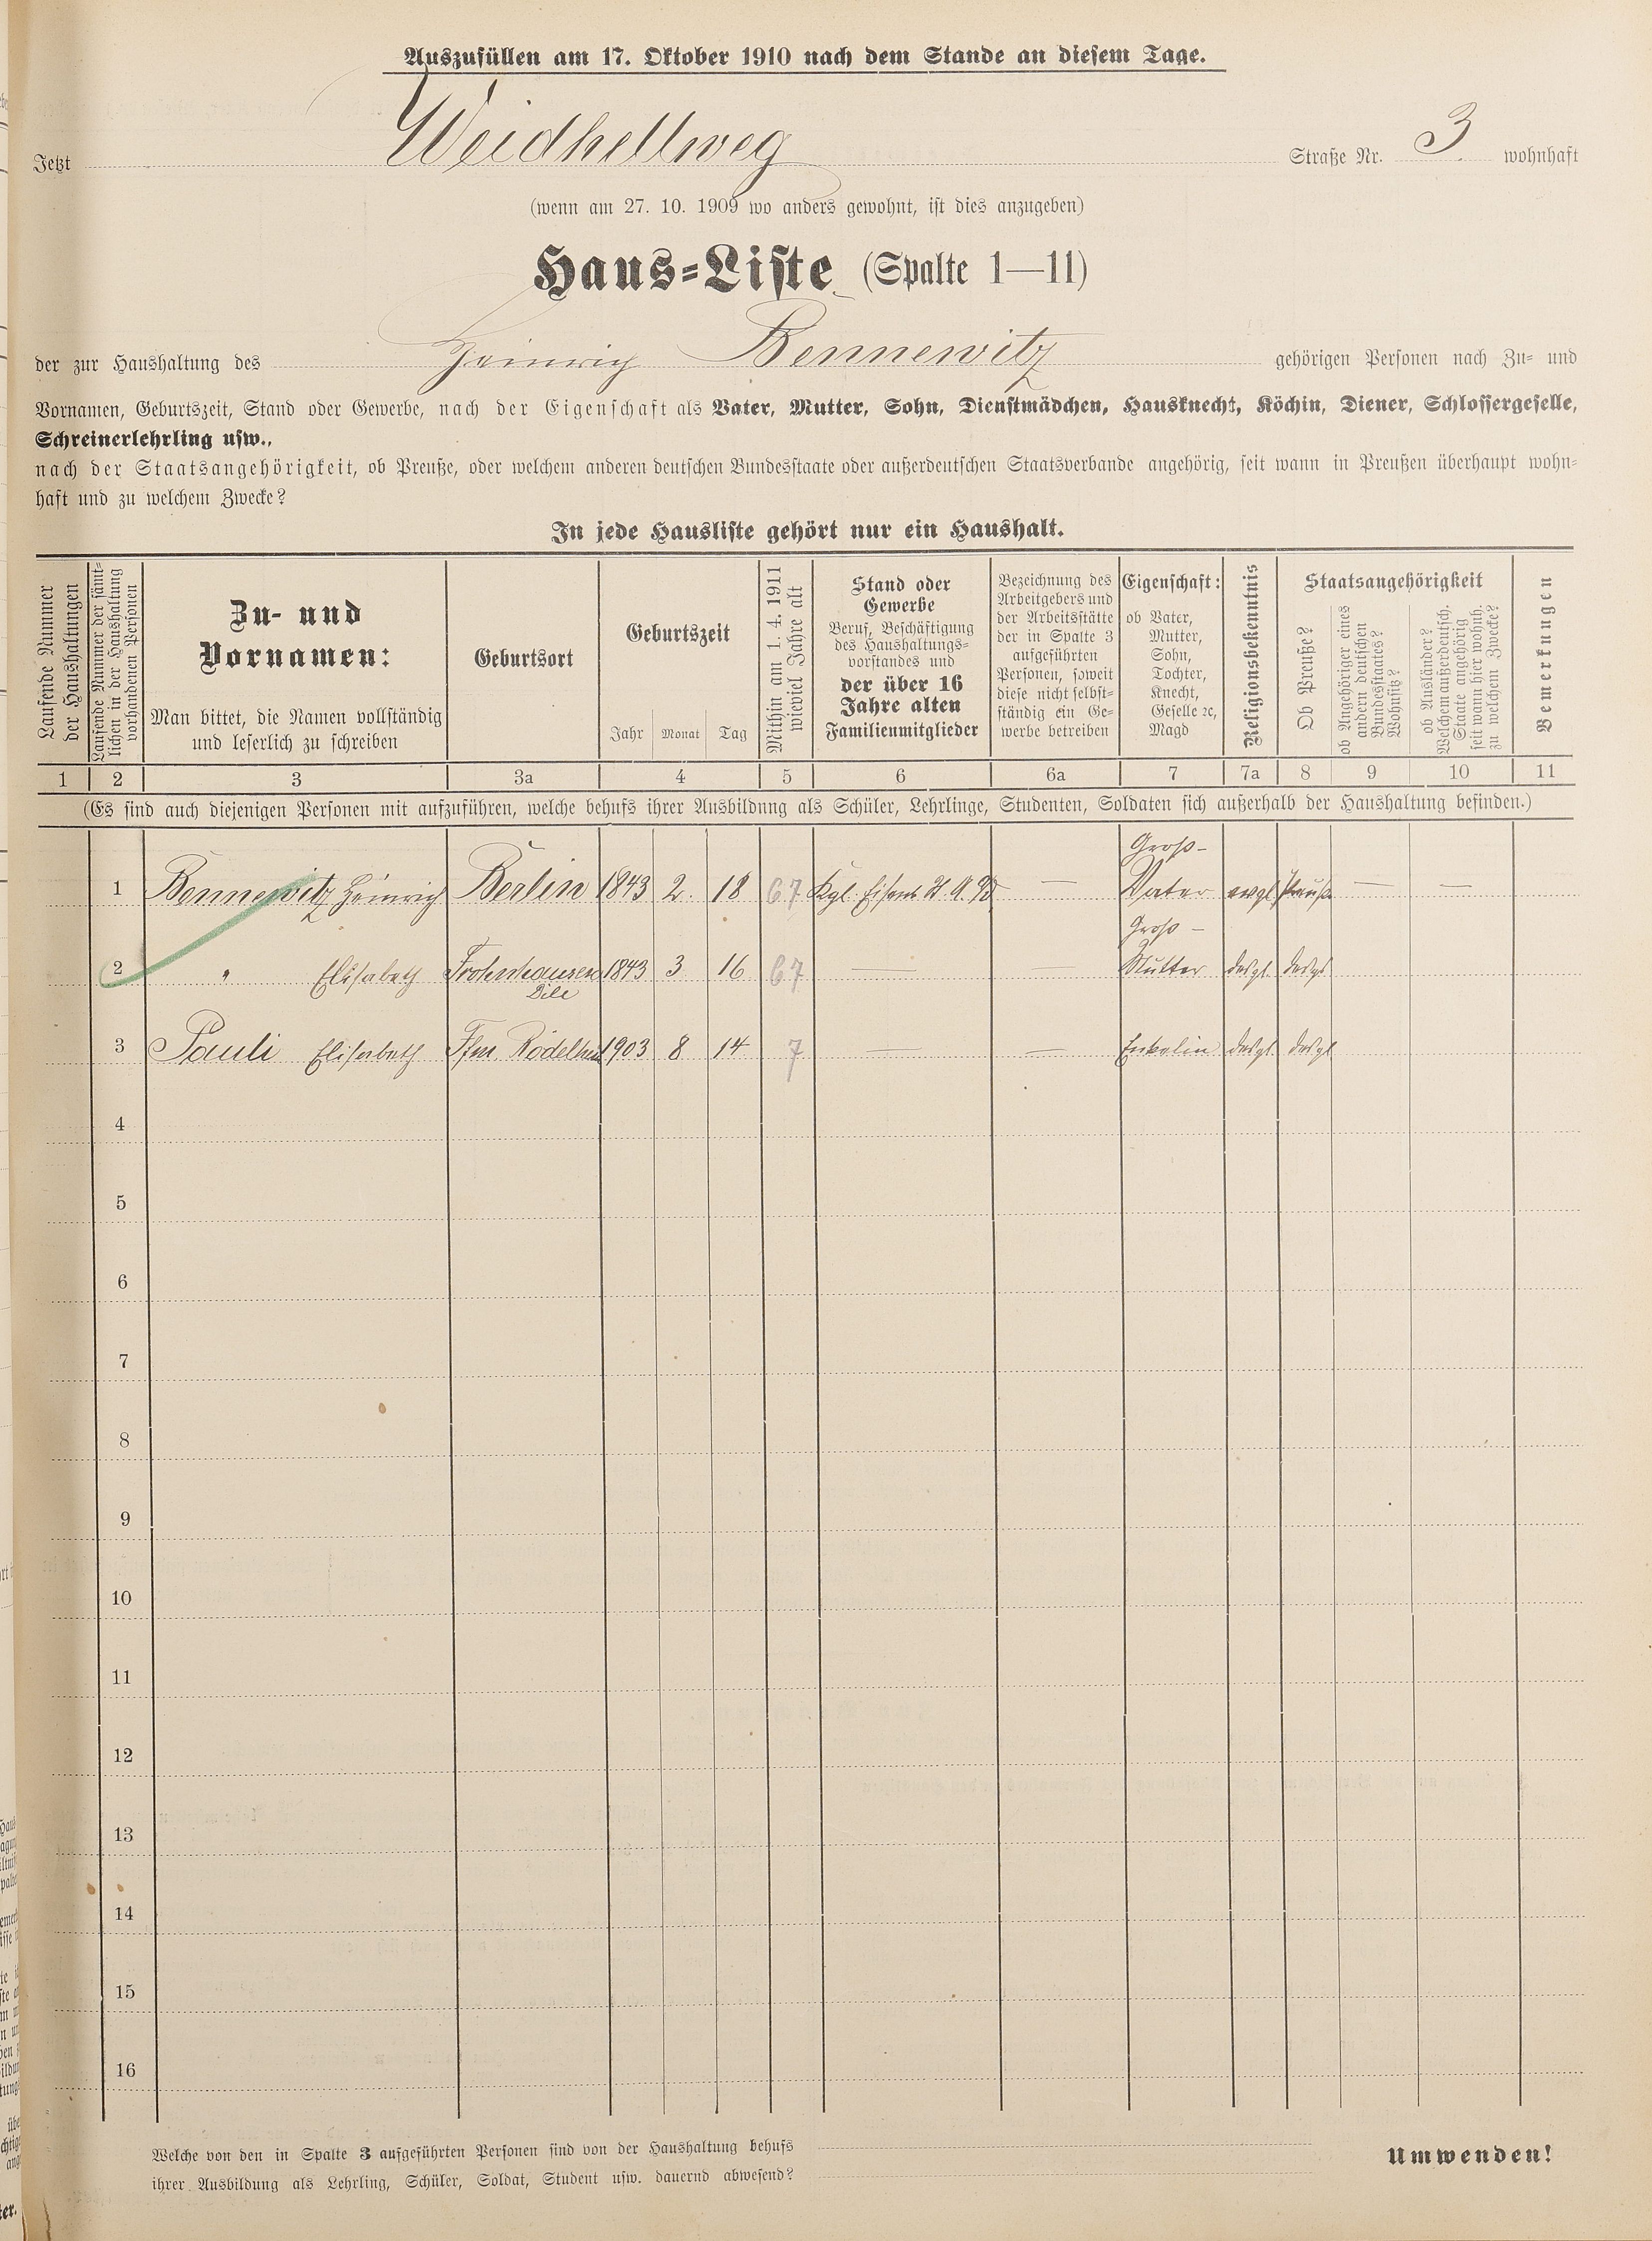 Auszufüllen am 17. Oktober 1910 nach dem Stande an diesem Tage.
Jetzt Weidhellweg Straße Nr. 3 wohnhaft
(wenn am 27. 10. 1909 wo anders gewohnt, ist dies anzugeben)
Haus-Liste (Spalte 1—11)
der zur Haushaltung des Heinrich Bennewitz gehörigen Personen nach Zu- und
Vornamen, Geburtszeit, Stand oder Gewerbe, nach der Eigenschaft als Vater, Mutter, Sohn, Dienstmädchen, Hausknecht, Köchin, Diener, Schlossergeselle,
Schreinerlehrling usw.,
nach der Staatsangehörigkeit, ob Preuße, oder welchem anderen deutschen Bundesstaate oder außerdeutschen Staatsverbande angehörig, seit wann in Preußen überhaupt wohn-
haft und zu welchem Zwecke?
In jede Hausliste gehört nur ein Haushalt.
Laufende Nummer
der Haushaltungen
Laufende Nummer der sämt-
lichen in der Haushaltung
vorhandenen Personen
Zu- und
Vornamen:
Man bittet, die Namen vollständig
und leserlich zu schreiben
Geburtsort
Geburtszeit
Jahr Monat Tag
Mithin am 1. 4. 1911
wieviel Jahre alt
Stand oder
Gewerbe
Beruf, Beschäftigung
des Haushaltungs-
vorstandes und
der über 16
Jahre alten
Familienmitglieder
Bezeichnung des
Arbeitgebers und
der Arbeitsstätte
der in Spalte 3
aufgeführten
Personen, soweit
diese nicht selbst-
ständig ein Ge-
werbe betreiben
Eigenschaft:
ob Vater,
Mutter,
Sohn,
Tochter,
Knecht,
Geselle ꝛc,
Magd
Religionsbekenntnis
Staatsangehörigkeit
Ob Preuße?
ob Angehöriger eines
andern deutschen
Bundesstaates?
Wohnsitz?
ob Ausländer?
Welchem außerdeutsch.
Staate angehörig
seit wann hier wohnh.
zu welchem Zwecke?
Bemerkungen
1 2 3 3a 4 5 6 6a 7 7a 8 9 10 11
(Es sind auch diejenigen Personen mit aufzuführen, welche behufs ihrer Ausbildung als Schüler, Lehrlinge, Studenten, Soldaten sich außerhalb der Haushaltung befinden.)
Groß-
1 Bennewitz Heinrich Berlin 1843 2. 18 67 Kgl. Eisenb. — Vater evgl Preuße — —
Groß-
2 " Elisabeth Frohnhausen 1843 3 16 67 — Mutter desgl. desgl
Dill
3 Pauli Elisabeth Ffm. Rödelheim 1903 8 14 7 — — Enkelin desgl. desgl
4
5
6
7
8
9
10
11
12
13
14
15
16
Welche von den in Spalte 3 aufgeführten Personen sind von der Haushaltung behufs
ihrer Ausbildung als Lehrling, Schüler, Soldat, Student usw. dauernd abwesend?
Umwenden!